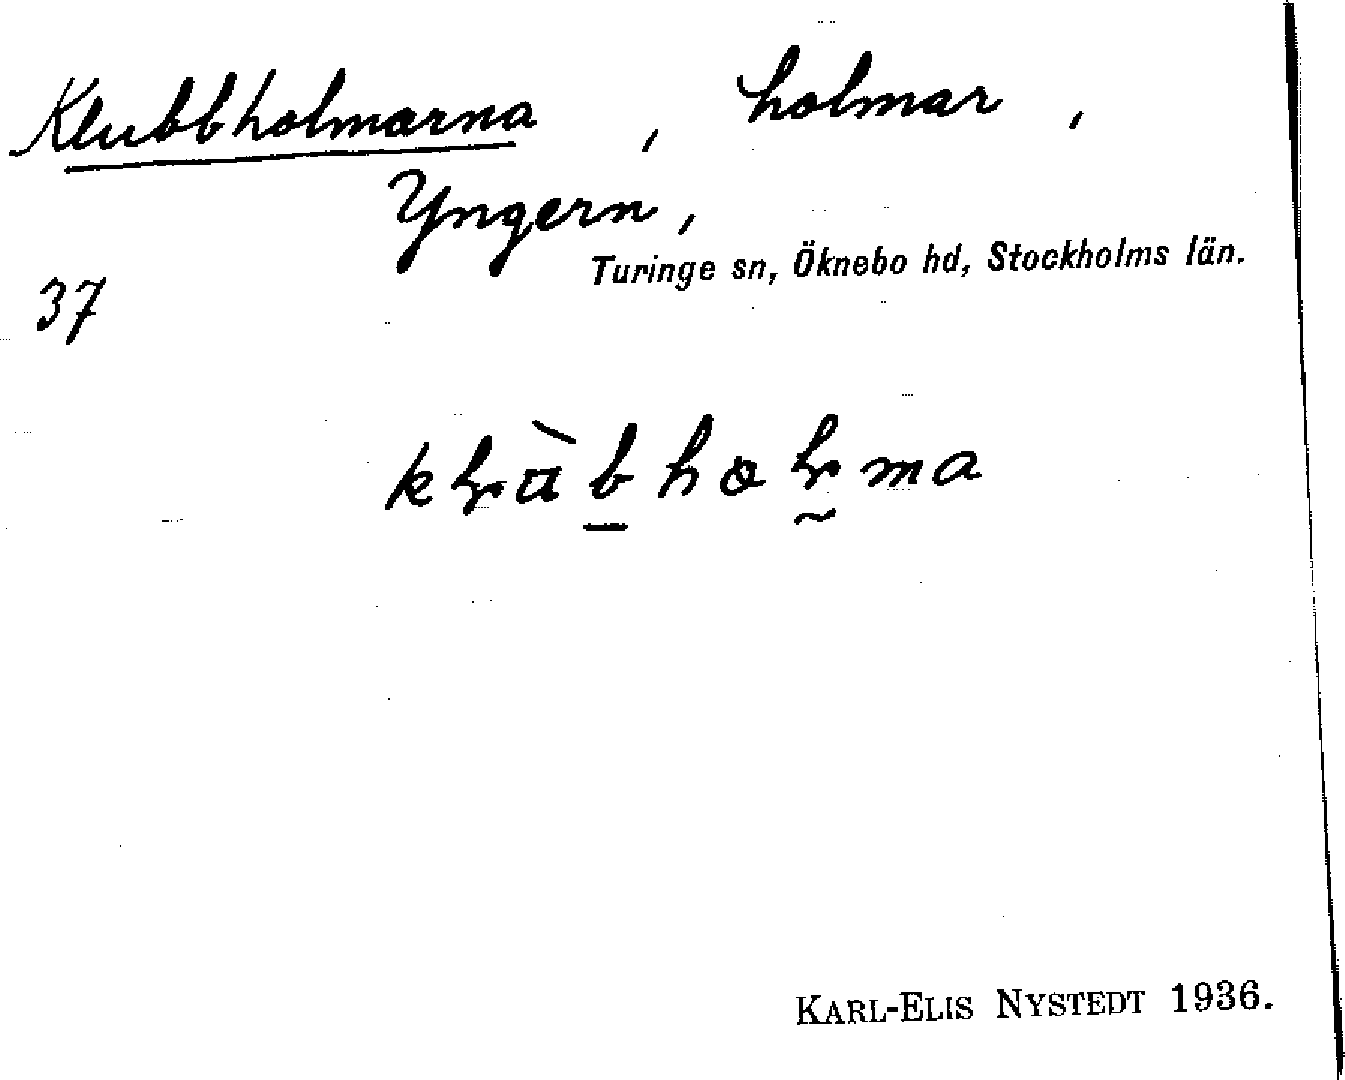 Klubbholmarna, holmar,
Yngern,
Turinge sn, Öknebo hd, Stockholms län.
37
KARL-ELIS NYSTEDT 1936.